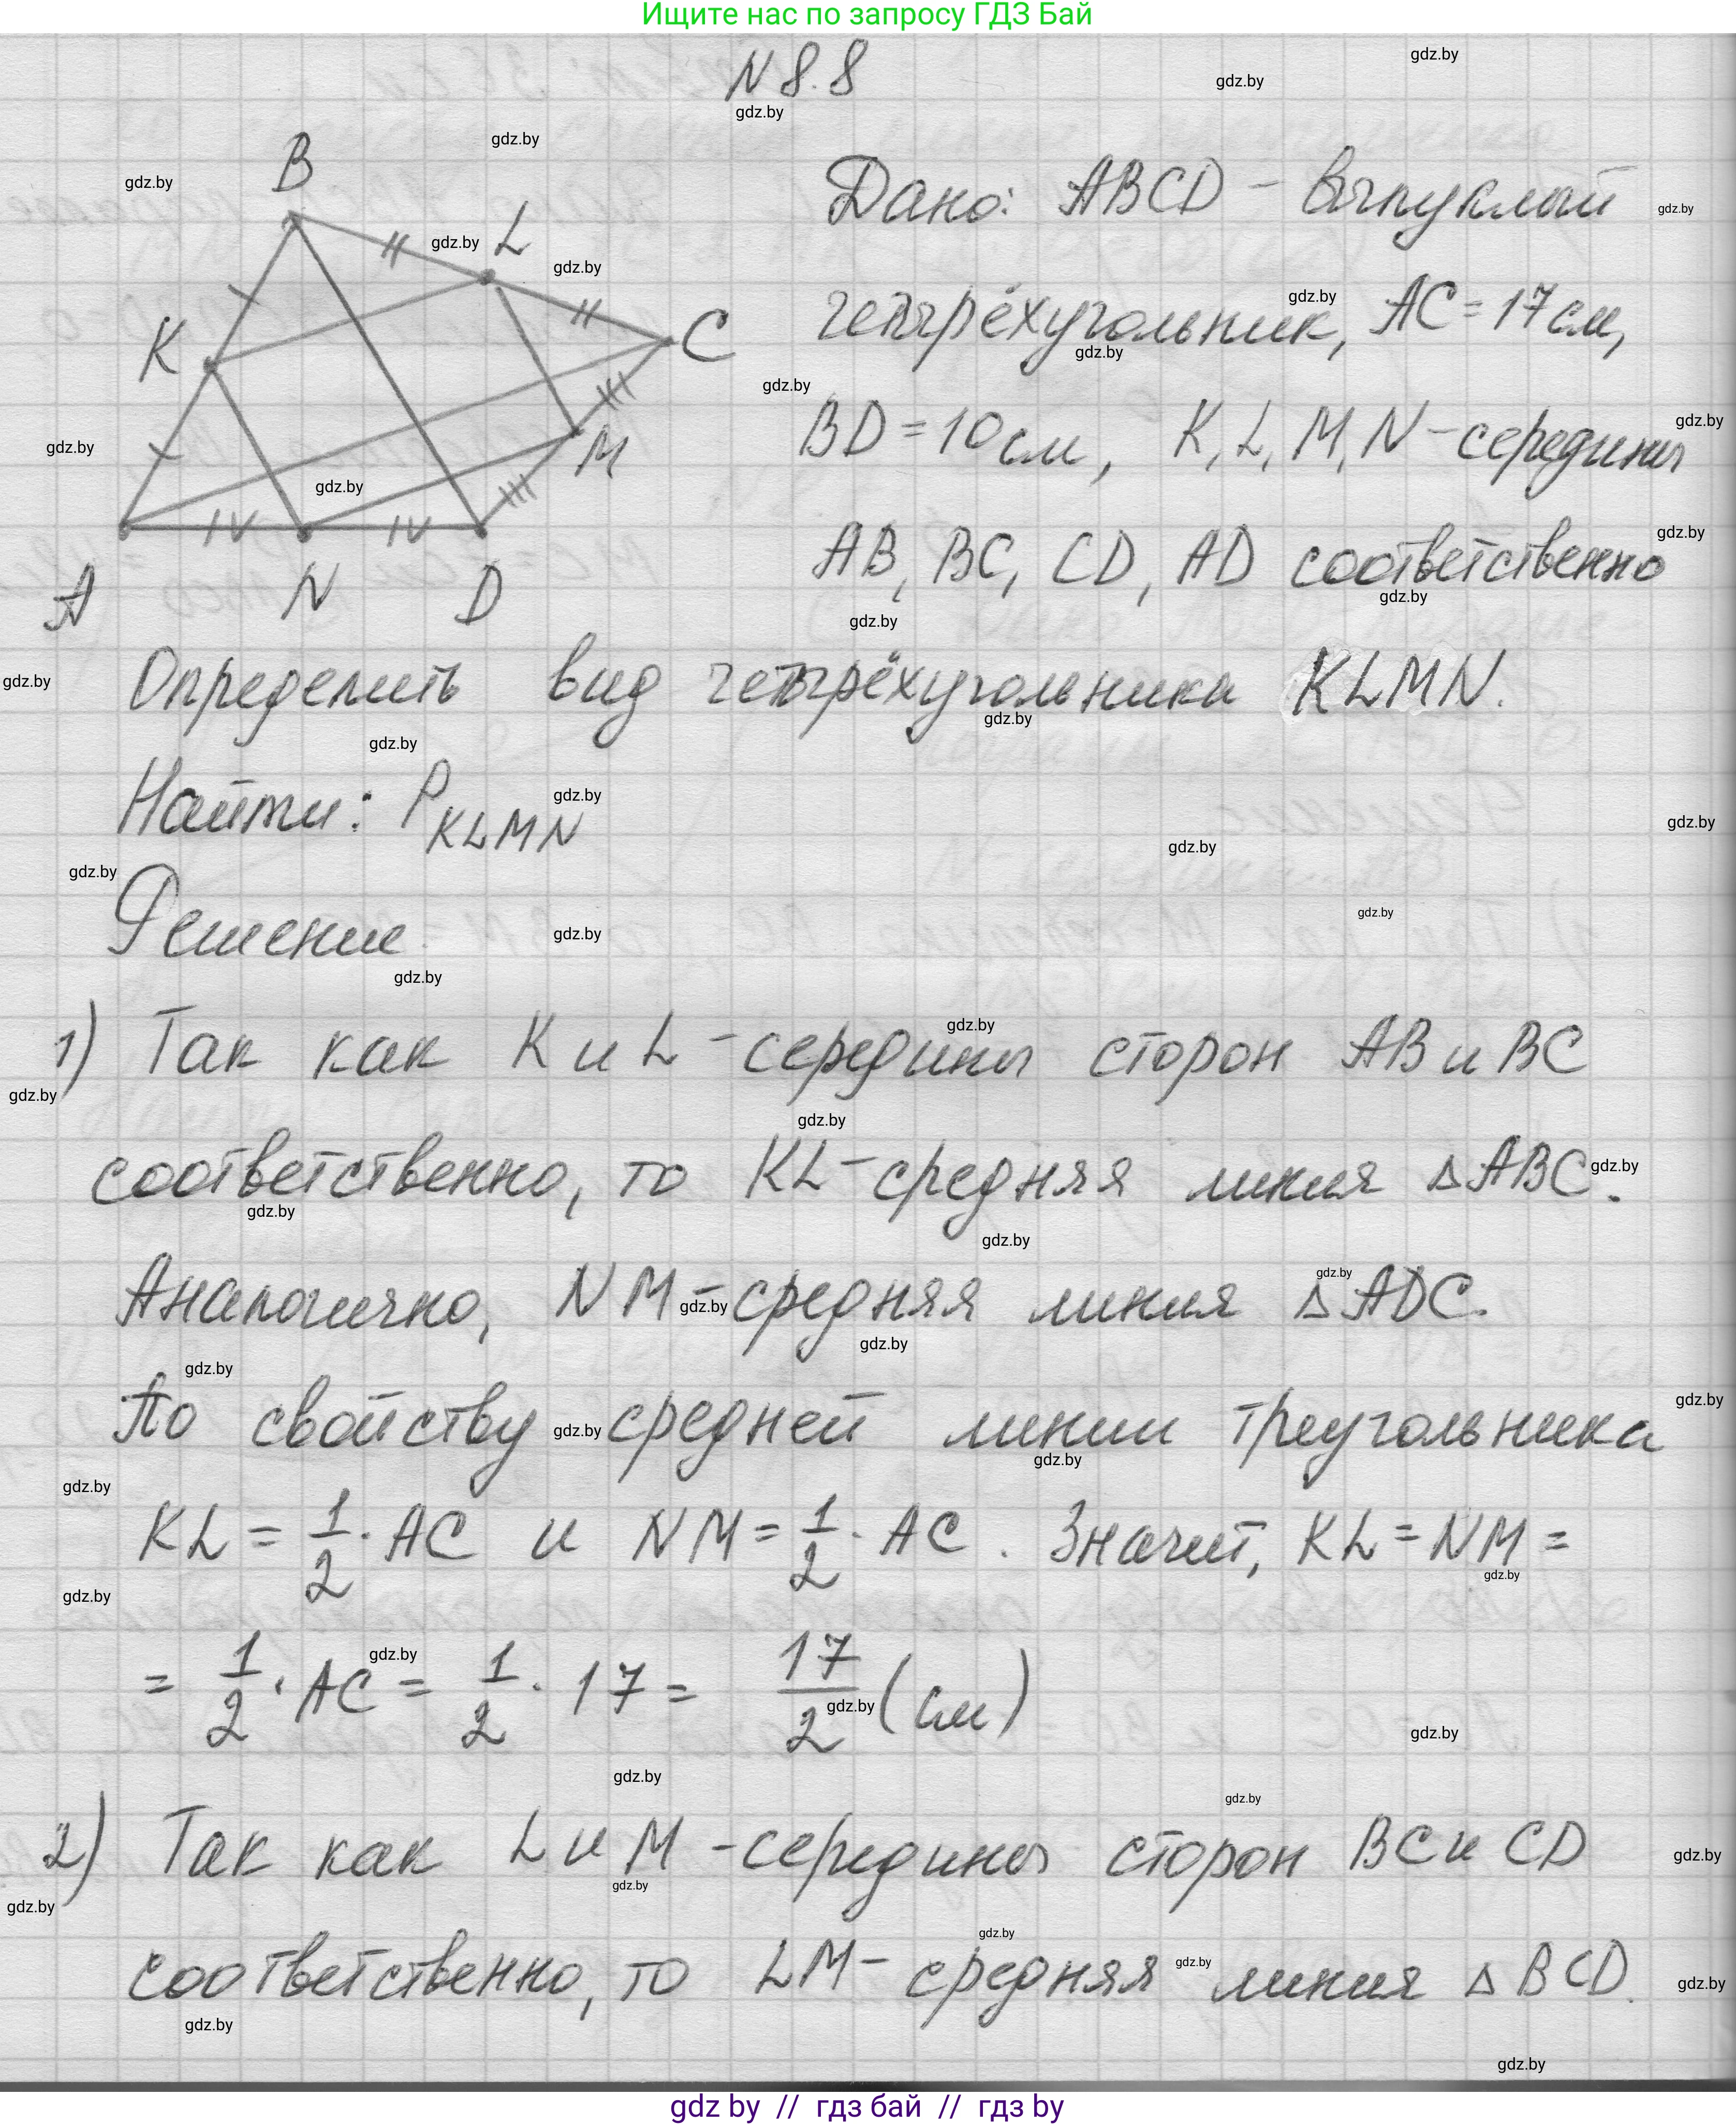 Ищите нас по запросу ГДЗ Бай
N 8.8
B
L
K
C
M
A
N
D
IV
IV
Дано: ABCD - выпуклый
четырёхугольник, AC = 17 см,
BD = 10 см, K, L, M, N - середины
AB, BC, CD, AD соответственно
Определить вид четырёхугольника KLMN.
Найти: P KLMN
Решение
1) Так как K и L - середины сторон AB и BC
соответственно, то KL - средняя линия △ABC.
Аналогично, NM - средняя линия △ADC.
По свойству средней линии треугольника
KL = 1/2 · AC и NM = 1/2 · AC. Значит, KL = NM =
= 1/2 · AC = 1/2 · 17 = 17/2 (см)
2) Так как L и M - середины сторон BC и CD
соответственно, то LM - средняя линия △BCD.
gdz.by
gdz by // гдз бай // гдз by